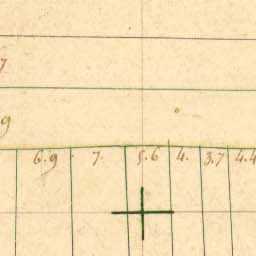 7
9
6.9 7. 5.6 4. 3.7 4.4